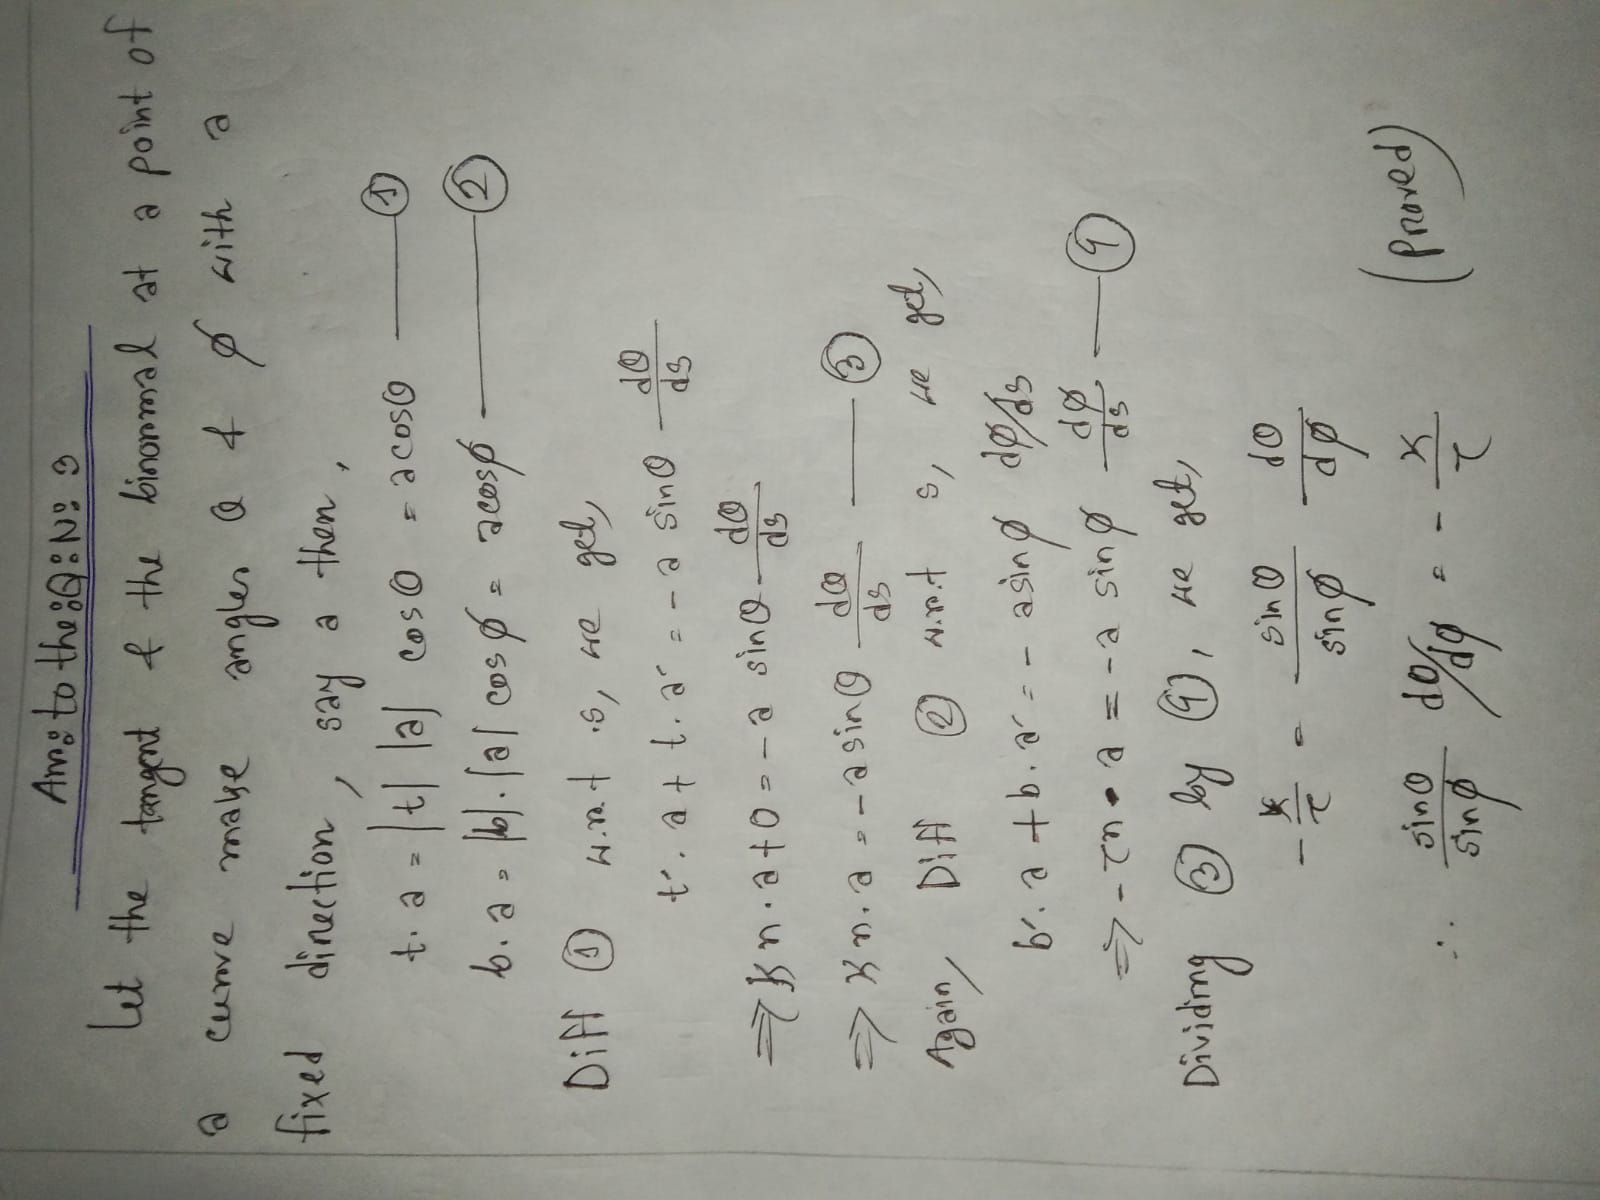 Ans: to the: Q: N: 3
Let the tangent & the binormal at a point of
a curve make angles θ & φ with a
fixed direction, say a then,
t. a = |t| |a| cos θ = a cos θ ——— ①
b. a = |b|. |a| cos φ = a cos φ ——— ②
Diff ① w.r.t. s, we get,
t'. a + t. a' = - a sin θ dθ/ds
⇒ κ n. a + 0 = - a sin θ dθ/ds
⇒ κ n. a = - a sin θ dθ/ds ——— ③
Again, Diff ② w.r.t s, we get,
b'. a + b. a' = - a sin φ dφ/ds
⇒ - τ n • a = - a sin φ dφ/ds ——— ④
Dividing ③ by ④, we get,
- κ/τ = sin θ/sin φ dθ/dφ
∴ sin θ/sin φ dθ/dφ = - κ/τ
(Proved)